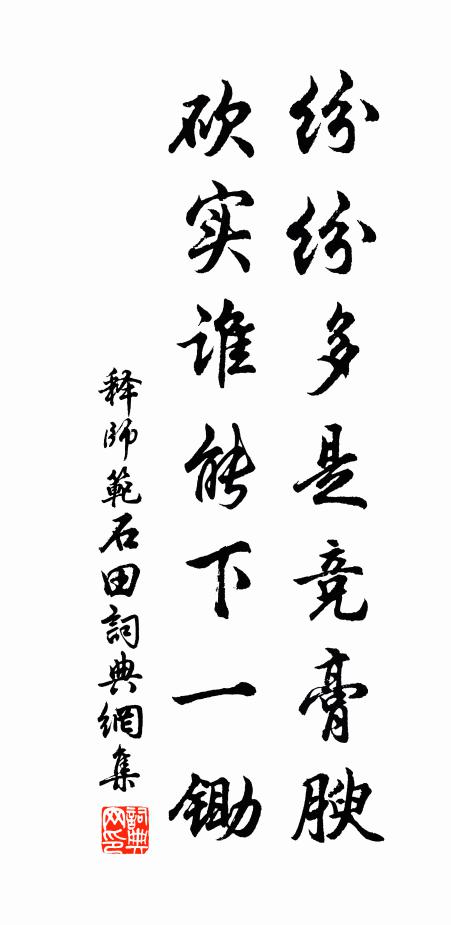 纷纷多是竞膏腴
砍实谁能下一锄
释師範石田詞典網集
詞典网印